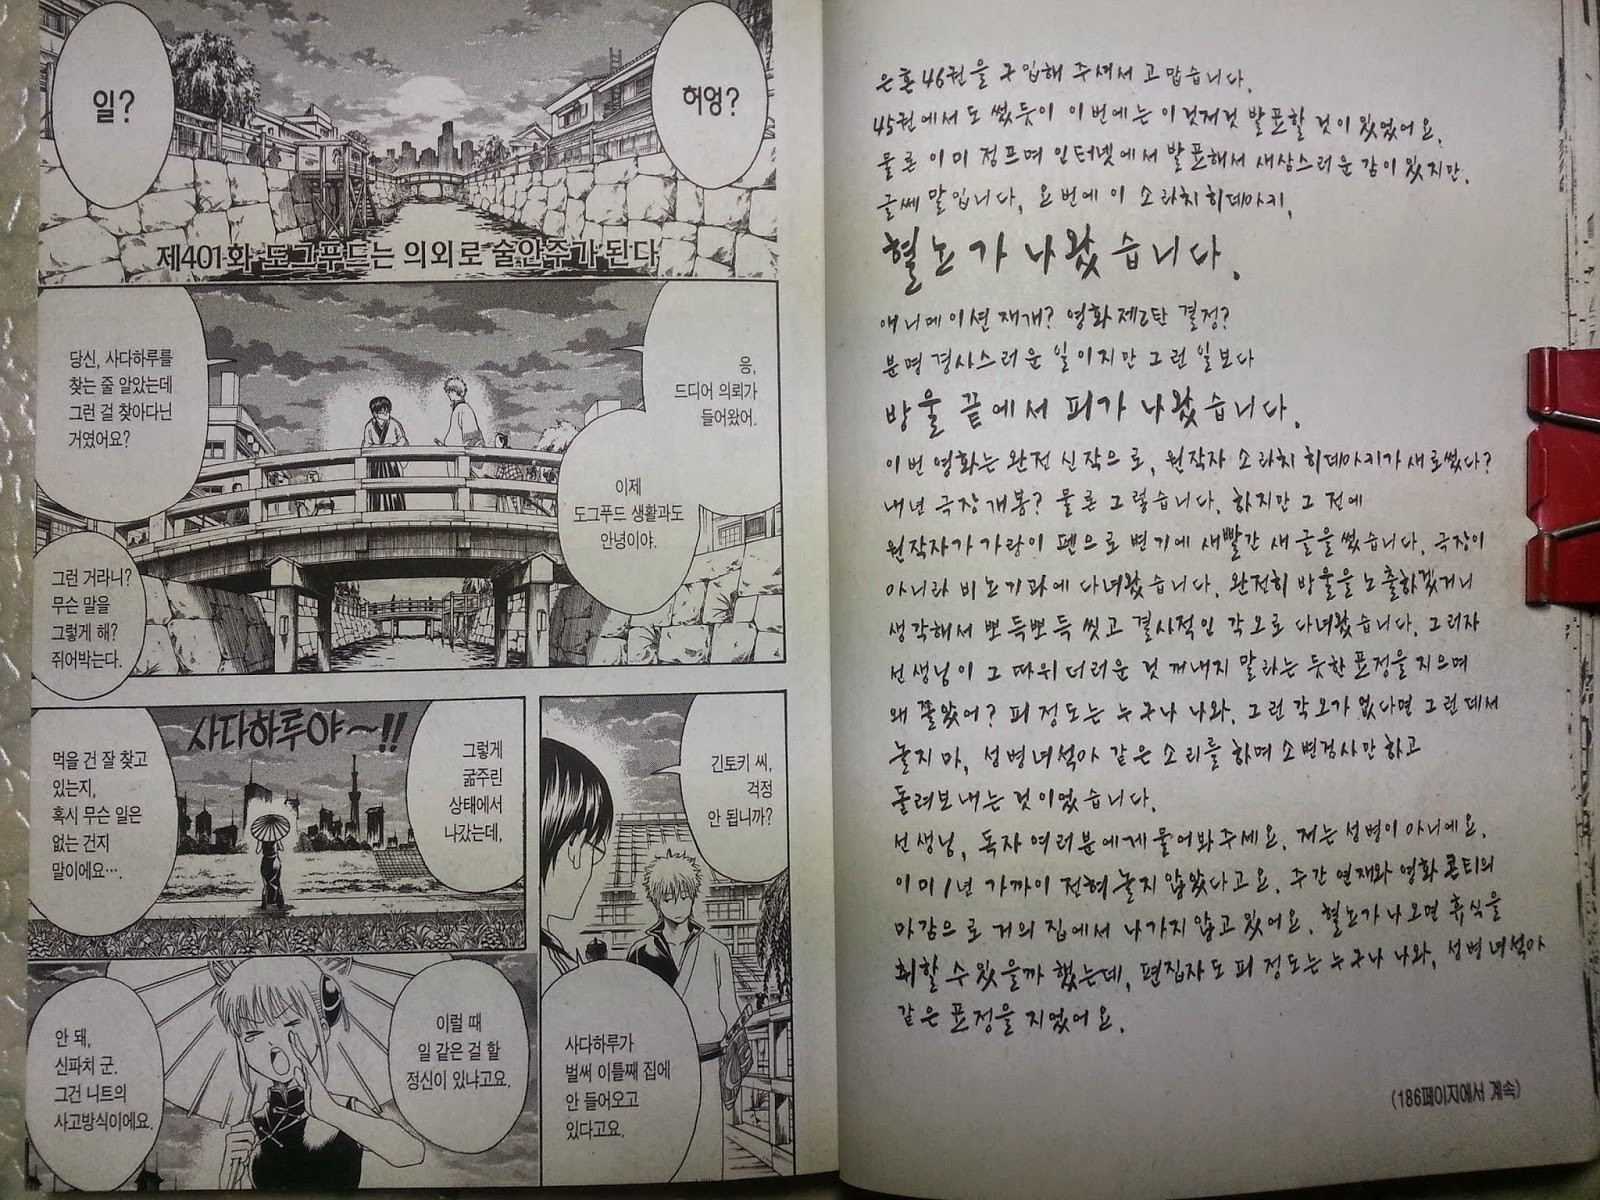 허엉?
일?
제401화 도그푸드는 의외로 술안주가 된다
응,
드디어 의뢰가
들어왔어.
이제
도그푸드 생활과도
안녕이야.
당신, 사다하루를
찾는 줄 알았는데
그런 걸 찾아다닌
거였어요?
그런 거라니?
무슨 말을
그렇게 해?
쥐어박는다.
긴토키 씨,
걱정
안 됩니까?
사다하루가
벌써 이틀째 집에
안 들어오고
있다고요.
사다하루야~!!
그렇게
굶주린
상태에서
나갔는데,
먹을 건 잘 찾고
있는지,
혹시 무슨 일은
없는 건지
말이에요….
이럴 때
일 같은 걸 할
정신이 있냐고요.
안 돼,
신파치 군.
그건 니트의
사고방식이에요.
은혼 46권을 구입해 주셔서 고맙습니다.
45권에서도 썼듯이 이번에는 이것저것 발표할 것이 있었어요.
물론 이미 점프며 인터넷에서 발표해서 새삼스러운 감이 있지만.
글쎄 말입니다, 요번에 이 소라치 히데아키,
혈뇨가 나왔습니다.
애니메이션 재개? 영화 제2탄 결정?
분명 경사스러운 일이지만 그런 일보다
방울 끝에서 피가 나왔습니다.
이번 영화는 완전 신작으로, 원작자 소라치 히데아키가 새로 썼다?
내년 극장 개봉? 물론 그렇습니다. 하지만 그 전에
원작자가 가랑이 펜으로 변기에 새빨간 새 글을 썼습니다. 극장이
아니라 비뇨기과에 다녀왔습니다. 완전히 방울을 노출하겠거니
생각해서 뽀득뽀득 씻고 결사적인 각오로 다녀왔습니다. 그러자
선생님이 그 따위 더러운 것 꺼내지 말라는 듯한 표정을 지으며
왜 쫄았어? 피 정도는 누구나 나와. 그런 각오가 없다면 그런 데서
놀지 마, 성병녀석아 같은 소리를 하며 소변검사만 하고
돌려보내는 것이었습니다.
선생님, 독자 여러분에게 물어봐주세요. 저는 성병이 아니에요.
이미 1년 가까이 전혀 놀지 않았다고요. 주간 연재와 영화 콘티의
마감으로 거의 집에서 나가지 않고 있어요. 혈뇨가 나오면 휴식을
취할 수 있을까 했는데, 편집자도 피 정도는 누구나 나와, 성병녀석아
같은 표정을 지었어요.
(186페이지에서 계속)